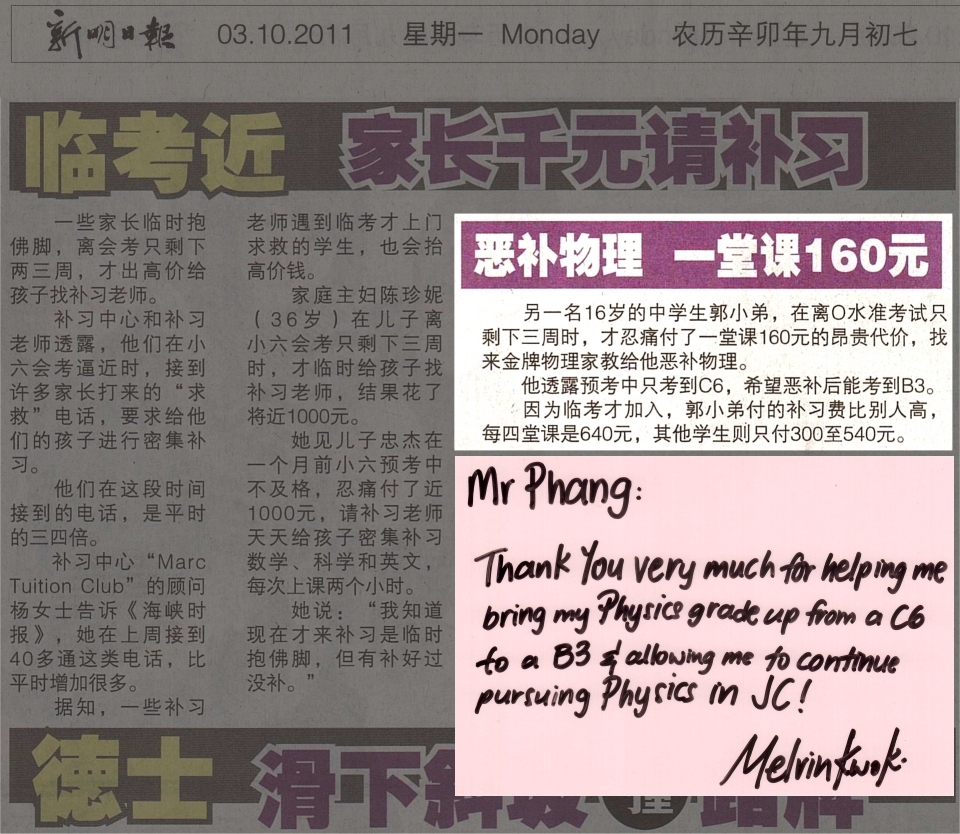 新明日報 03.10.2011 星期一 Monday 农历辛卯年九月初七
临考近 家长千元请补习
一些家长临时抱
佛脚，离会考只剩下
两三周，才出高价给
孩子找补习老师。
补习中心和补习
老师透露，他们在小
六会考逼近时，接到
许多家长打来的“求
救”电话，要求给他
们的孩子进行密集补
习。
他们在这段时间
接到的电话，是平时
的三四倍。
补习中心“Marc
Tuition Club”的顾问
杨女士告诉《海峡时
报》，她在上周接到
40多通这类电话，比
平时增加很多。
据知，一些补习
老师遇到临考才上门
求救的学生，也会抬
高价钱。
家庭主妇陈珍妮
（36岁）在儿子离
小六会考只剩下三周
时，才临时给孩子找
补习老师，结果花了
将近1000元。
她见儿子忠杰在
一个月前小六预考中
不及格，忍痛付了近
1000元，请补习老师
天天给孩子密集补习
数学、科学和英文，
每次上课两个小时。
她说：“我知道
现在才来补习是临时
抱佛脚，但有补好过
没补。”
恶补物理 一堂课160元
另一名16岁的中学生郭小弟，在离O水准考试只
剩下三周时，才忍痛付了一堂课160元的昂贵代价，找
来金牌物理家教给他恶补物理。
他透露预考中只考到C6，希望恶补后能考到B3。
因为临考才加入，郭小弟付的补习费比别人高，
每四堂课是640元，其他学生则只付300至540元。
Mr Phang:
Thank You very much for helping me
bring my Physics grade up from a C6
to a B3 & allowing me to continue
pursuing Physics in JC!
Melvin Kwok.
德士 滑下斜坡 撞 路牌